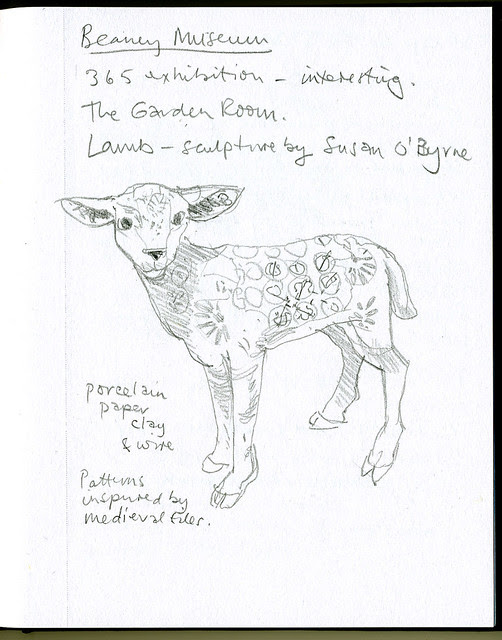 Beaney Museum
365 exhibition - interesting.
The Garden Room.
Lamb - sculpture by Susan O'Byrne
porcelain
paper
clay
& wire
Patterns
inspired by
medieval tiles.